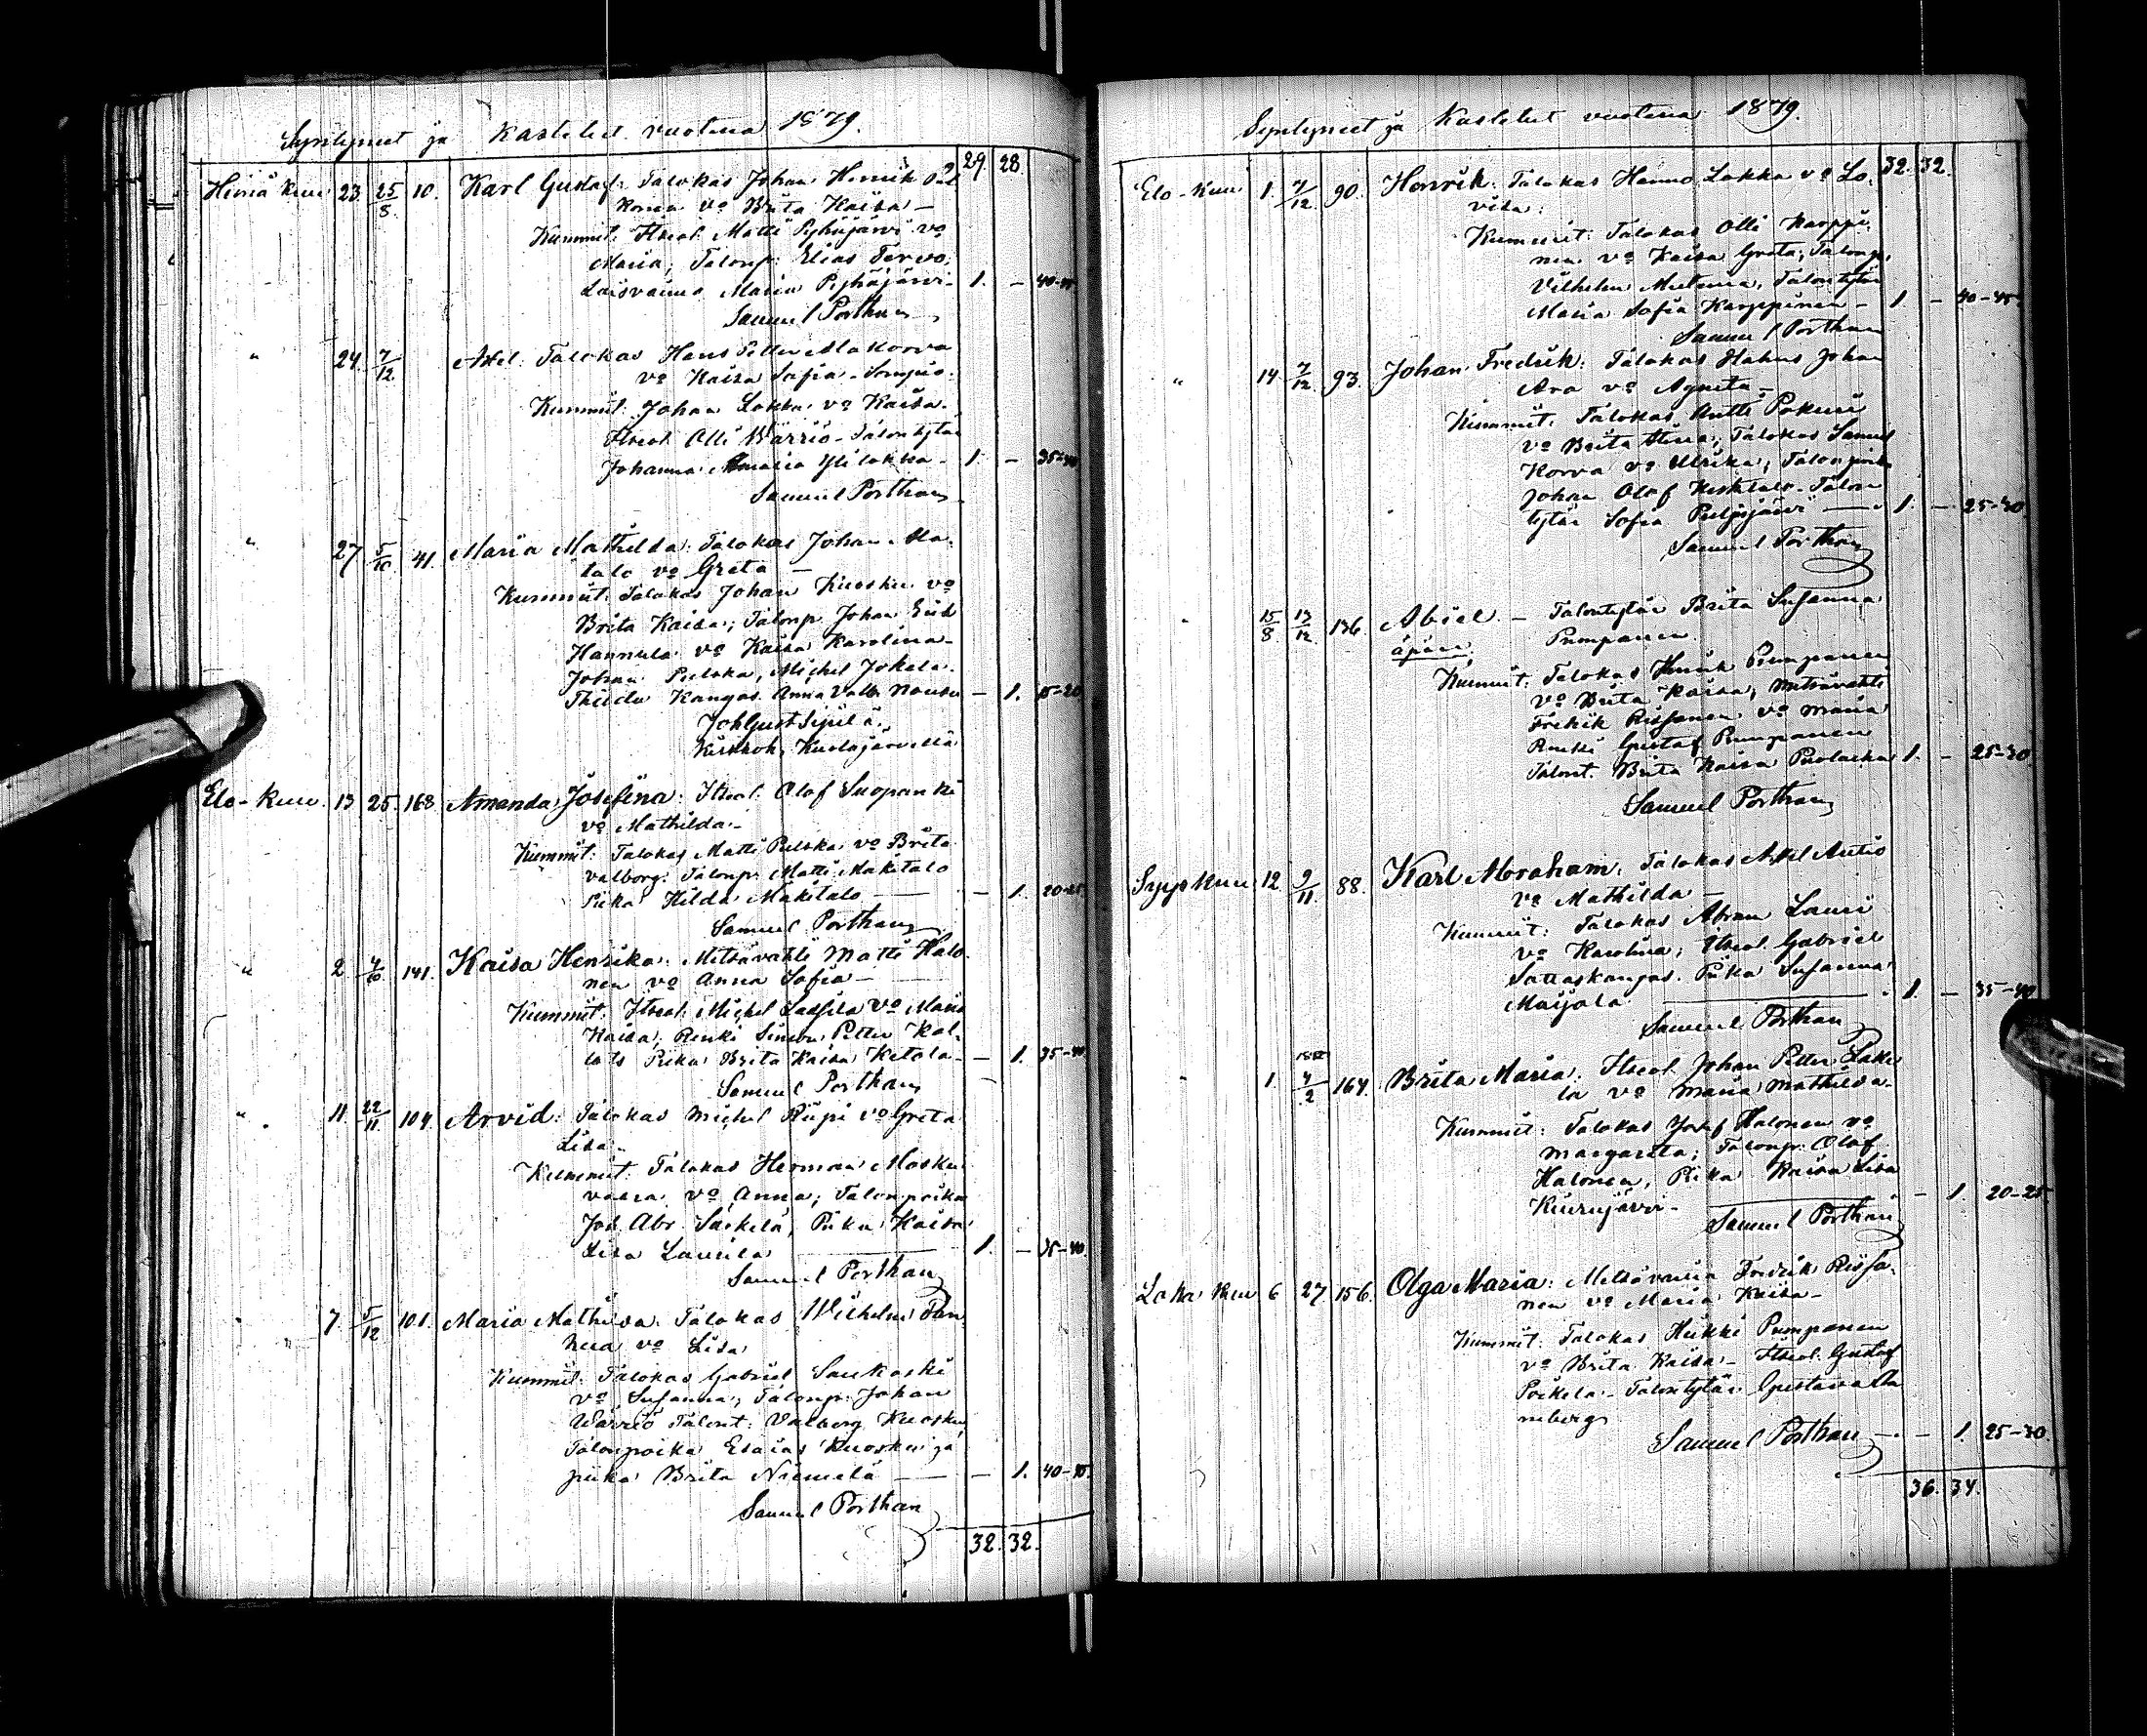 Syntyneet ja Kastetut vuotena 1879.
29. 28.
Heinä kuu 23. 25/8. 10. Karl Gustaf: Talokas Johan Henrik
vo Brita Kaisa —
Kummit: Itseol. Matti Pyhäjärvi vo
Maria; Talonp: Elias Tervo,
Maria Pyhäjärvi 1. —
Samuel Porthan
" 24. 7/12. Axel: Talokas Hans Petter Alakorva
vo Kaisa Sofia - Sompio.
Kummit: Johan Lokka vo Kaisa.
Itseol. Olli Wärriö - Talontytär
Johanna Maria Ylilokka - 1. —
Samuel Porthan
" 27 5/10. 41. Maria Mathilda: Talokas Johan Ala-
talo vo Greta —
Kummit: Talokas Johan Kuosku vo
Brita Kaisa; Talonp. Johan Erik
Hannula vo Kaisa Karolina -
Johan Pulska, Michel Jokela.
Kangas. Anna Valb. — 1. 15-20
Joh Gust Sipilä.
Kirkkoh. Kuolajärvellä
Elo - kuu. 13 25. 168. Amanda Josefina: Itseol. Olof Suopanki
vo Mathilda.-
Kummit: Talokas Matti Pulska vo Brita
Valborg: Talonp. Matti Mäkitalo
Piika Hilda Mäkitalo — — 1. 20-25.
Samuel Porthan
" 2 4/10 141. Kaisa Henrika: Metsävahti Matti Halo-
nen vo Anna Sofia -
Kummit: Itseol. Michel vo Maria
Kaisa; Renki Petter
Piika Brita Kaisa Ketola - — 1. 35-40
Samuel Porthan
" 11. 22/11. 104. Arvid: Talokas Michel Riipi vo Greta
Lisa.-
Kummit: Talokas Herman Mosku-
vaara vo Anna; Talonpoika
Joh. Abr. Säkkilä, Piika Kaisa
Lisa Laurila 1. — 35-40
Samuel Porthan
" 7. 5/12 101. Maria Mathilda: Talokas Wilhelm Tan-
hua vo Lisa
Kummit: Talokas Gabriel Saukoski
vo Susanna; Talonp: Johan
Wärriö Talont: Valborg Kuosku
Talonpoika Esaias Kuosku ja
piika Brita Niemelä — — 1. 40-45
Samuel Porthan
32. 32.
Syntyneet ja Kastetut vuotena 1879.
32. 32.
Elo - kuu 1. 7/12. 90. Henrik: Talokas Hanno Lokka vo Lo-
visa:
Kummit: Talokas Olli Karppi-
nen vo Kaisa Greta; Talonp.
Vilhelm Mutenia, Talontytär
Maria Sofia Karppinen - 1. — 40-45.
Samuel Porthan
" 14. 7/12. 93. Johan Fredrik: Talokas Johan
vo Agneta -
Kummit: Talokas Antti Pokuri
vo Brita Stina; Talokas Samuel
Korva vo Ulrika; Talonpoika
Johan Olof Keskitalo - Talon
tytär Sofia 1. — 25-30
Samuel Porthan
" 15/8. 13/12. 136. Abiel - Talontytär Brita Susanna
äpärä. Pumpanen.
Kummit: Talokas Henrik Pumpanen
vo Brita Kaisa; Metsävahti
Fredrik Rissanen vo Maria
Renki Gustaf Pumpanen
Talont. Brita Kaisa 1. — 25-30.
Samuel Porthan
Syys kuu 12. 9/11. 88. Karl Abraham: Talokas Axel Autio
vo Mathilda —
Kummit: Talokas Abram Lauri
vo Karolina; Itseol. Gabriel
Sattaskangas. Piika Susanna
Marjala. 1. — 35-40
Samuel Porthan
" 1. 4/2 164. Brita Maria: Itseol. Johan Petter
vo Maria Mathilda -
Kummit: Talokas Josef Halonen vo
Margareta; Talonp: Olof
Halonen, Piika Kaisa Lisa
Kiurujärvi - — 1. 20-25
Samuel Porthan
Loka kuu 6 27 156. Olga Maria: Metsävahti Fredrik Rissa-
nen vo Maria Kaisa -
Kummit: Talokas Heikki Pumpanen
vo Brita Kaisa - Itseol. Gustaf
Poikela - Talontytär Gustava
Samuel Porthan — — 1. 25-30.
36. 34.